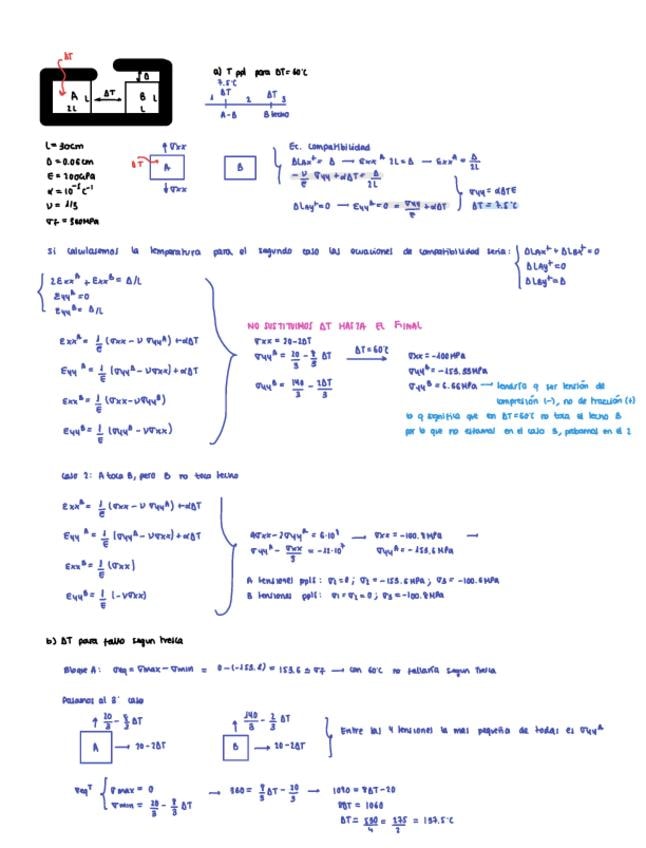 ΔT
A L
2L
ΔT
Δ
B L
L
a) T ppl para ΔT=60°C
7.5°C
1 ΔT 2 ΔT 3
A-B B techo
L=30cm
Δ=0.06cm
E=200GPa
α=10⁻⁵C⁻¹
ν=1/3
σf=360MPa
ΔT
A
σxx
σxx
B
Ec. compatibilidad
ΔLAx⁺=Δ → Exxᴬ 2L=Δ → Exxᴬ=Δ/2L
-ν/E σyy+αΔT=Δ/2L
ΔLAy⁺=0 → Eyyᴬ=0=σyy/E+αΔT
σyy=αΔTE
ΔT=7.5°C
Si calculasemos la temperatura para el segundo caso las ecuaciones de compatibilidad seria:
ΔLAx⁺+ΔLBx⁺=0
ΔLAy⁺=0
ΔLBy⁺=Δ
2Exxᴬ+Exxᴮ=Δ/L
Eyyᴬ=0
Eyyᴮ=Δ/L
Exxᴬ=1/E (σxx-ν σyyᴬ)+αΔT
Eyyᴬ=1/E (σyyᴬ-νσxx)+αΔT
Exxᴮ=1/E (σxx-νσyyᴮ)
Eyyᴮ=1/E (σyyᴮ-νσxx)
NO SUSTITUIMOS ΔT HASTA EL FINAL
σxx=20-2ΔT
σyyᴬ=20/3-8/3 ΔT
σyyᴮ=140/3-2ΔT/3
ΔT=60°C
σxx=-100MPa
σyyᴬ=-153.33MPa
σyyᴮ=6.66MPa → tendría q ser tensión de
compresión (-), no de tracción (+)
lo q significa que en ΔT=60°C no toca el techo B
por lo que no estamos en el caso 3, probamos en el 2
Caso 2: A toca B, pero B no toca techo
Exxᴬ=1/E (σxx-ν σyyᴬ)+αΔT
Eyyᴬ=1/E (σyyᴬ-νσxx)+αΔT
Exxᴮ=1/E (σxx)
Eyyᴮ=1/E (-νσxx)
σxx=-100.8MPa
σyyᴬ=-153.6MPa
A tensiones ppls: σ1=0; σ2=-153.6MPa; σ3=-100.6MPa
B tensiones ppls: σ1=σ2=0; σ3=-100.8MPa
b) ΔT para fallo segun tresca
Bloque A: σeq=σmax-σmin = 0-(-153.6)=153.6≤σf → con 60°C no fallaría segun tresca
Pasamos al 3° caso
20/3-8/3 ΔT
A → 20-2ΔT
140/3-2/3 ΔT
B → 20-2ΔT
Entre las 4 tensiones la mas pequeña de todas es σyyᴬ
σeqᵀ
σmax=0
σmin=20/3-8/3 ΔT
→ 360=8/3 ΔT-20/3 → 1080=8ΔT-20
8ΔT=1060
ΔT=550/4=275/2=137.5°C